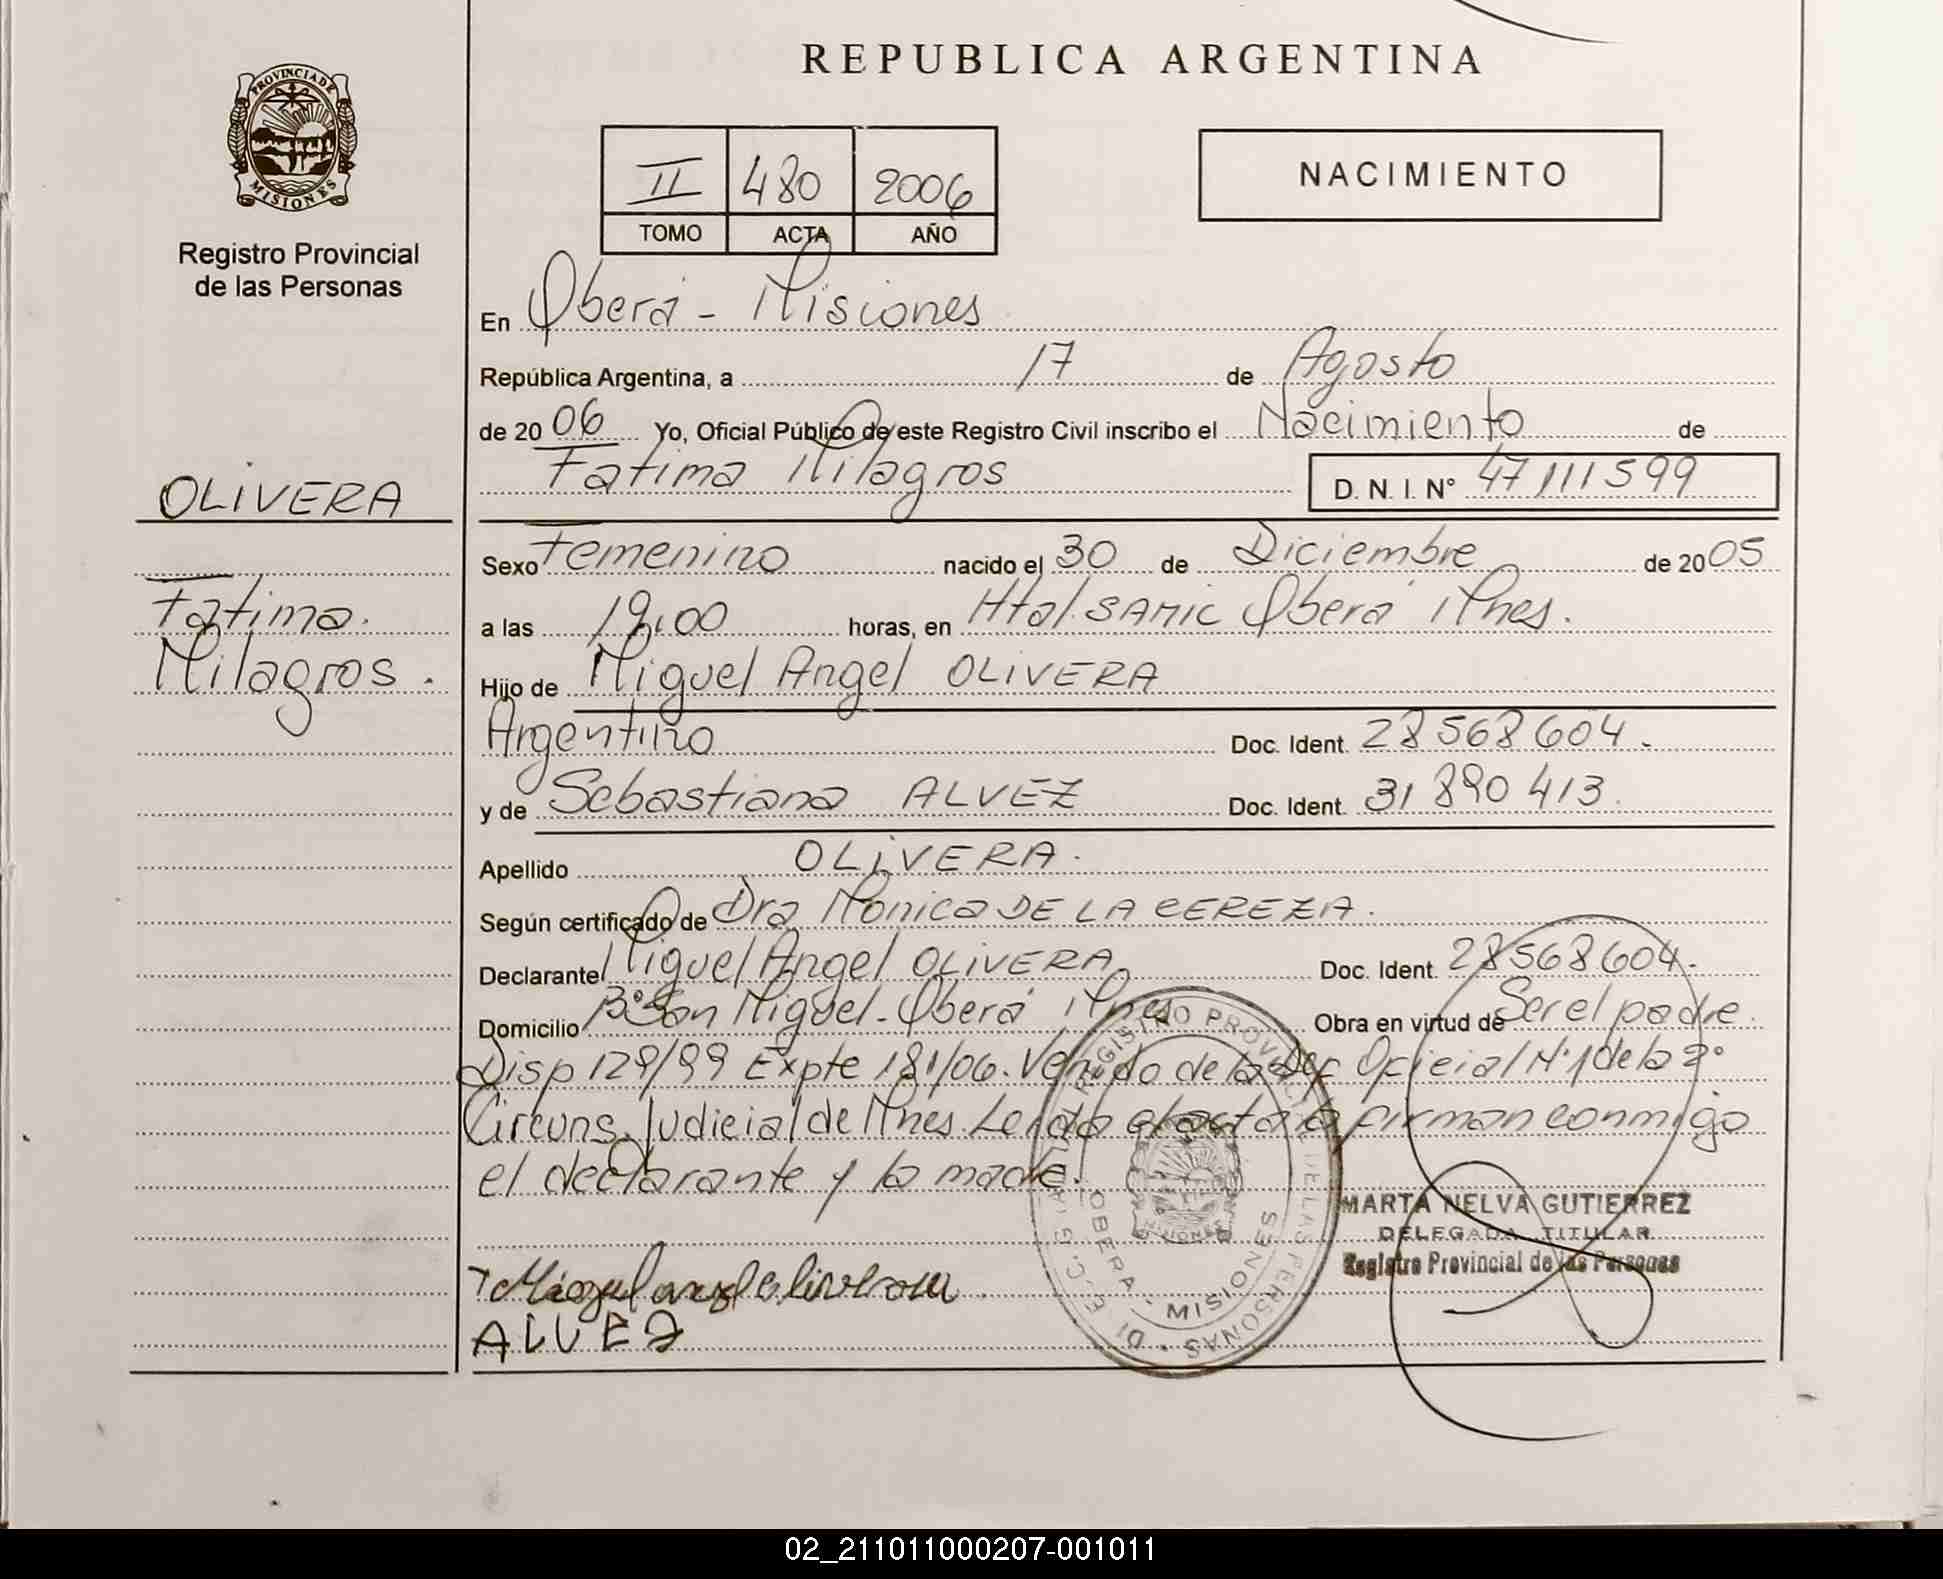 REPUBLICA ARGENTINA
PROVINCIA DE MISIONES
Registro Provincial
de las Personas
II 480 2006
TOMO ACTA AÑO
NACIMIENTO
En Oberá - Misiones
República Argentina, a 17 de Agosto
de 2006 Yo, Oficial Público de este Registro Civil inscribo el Nacimiento de
Fatima Milagros D. N. I. N° 47111599
OLIVERA
Fatima.
Milagros.
Sexo Femenino nacido el 30 de Diciembre de 2005
a las 19,00 horas, en Htal. SAMIC Oberá Mnes.
Hijo de Miguel Angel OLIVERA
Argentino Doc. Ident. 28568604.
y de Sebastiana ALVEZ Doc. Ident. 31890413.
Apellido OLIVERA.
Según certificado de Dra Monica DE LA CEREZA.
Declarante Miguel Angel OLIVERA Doc. Ident. 28568604.
Domicilio B° San Miguel - Oberá Mnes Obra en virtud de Ser el padre.
Disp 129/99 Expte 181/06. Venido de la Def Oficial N°1 de la 2°
Circuns. Judicial de Mnes. Leida el acta la firman conmigo
el declarante y la madre.
MARTA NELVA GUTIERREZ
DELEGADA TITULAR
Registro Provincial de las Personas
REGISTRO PROVINCIAL DE LAS PERSONAS
OBERA - MISIONES
Miguel angel olivera
ALVEZ
02_211011000207-001011